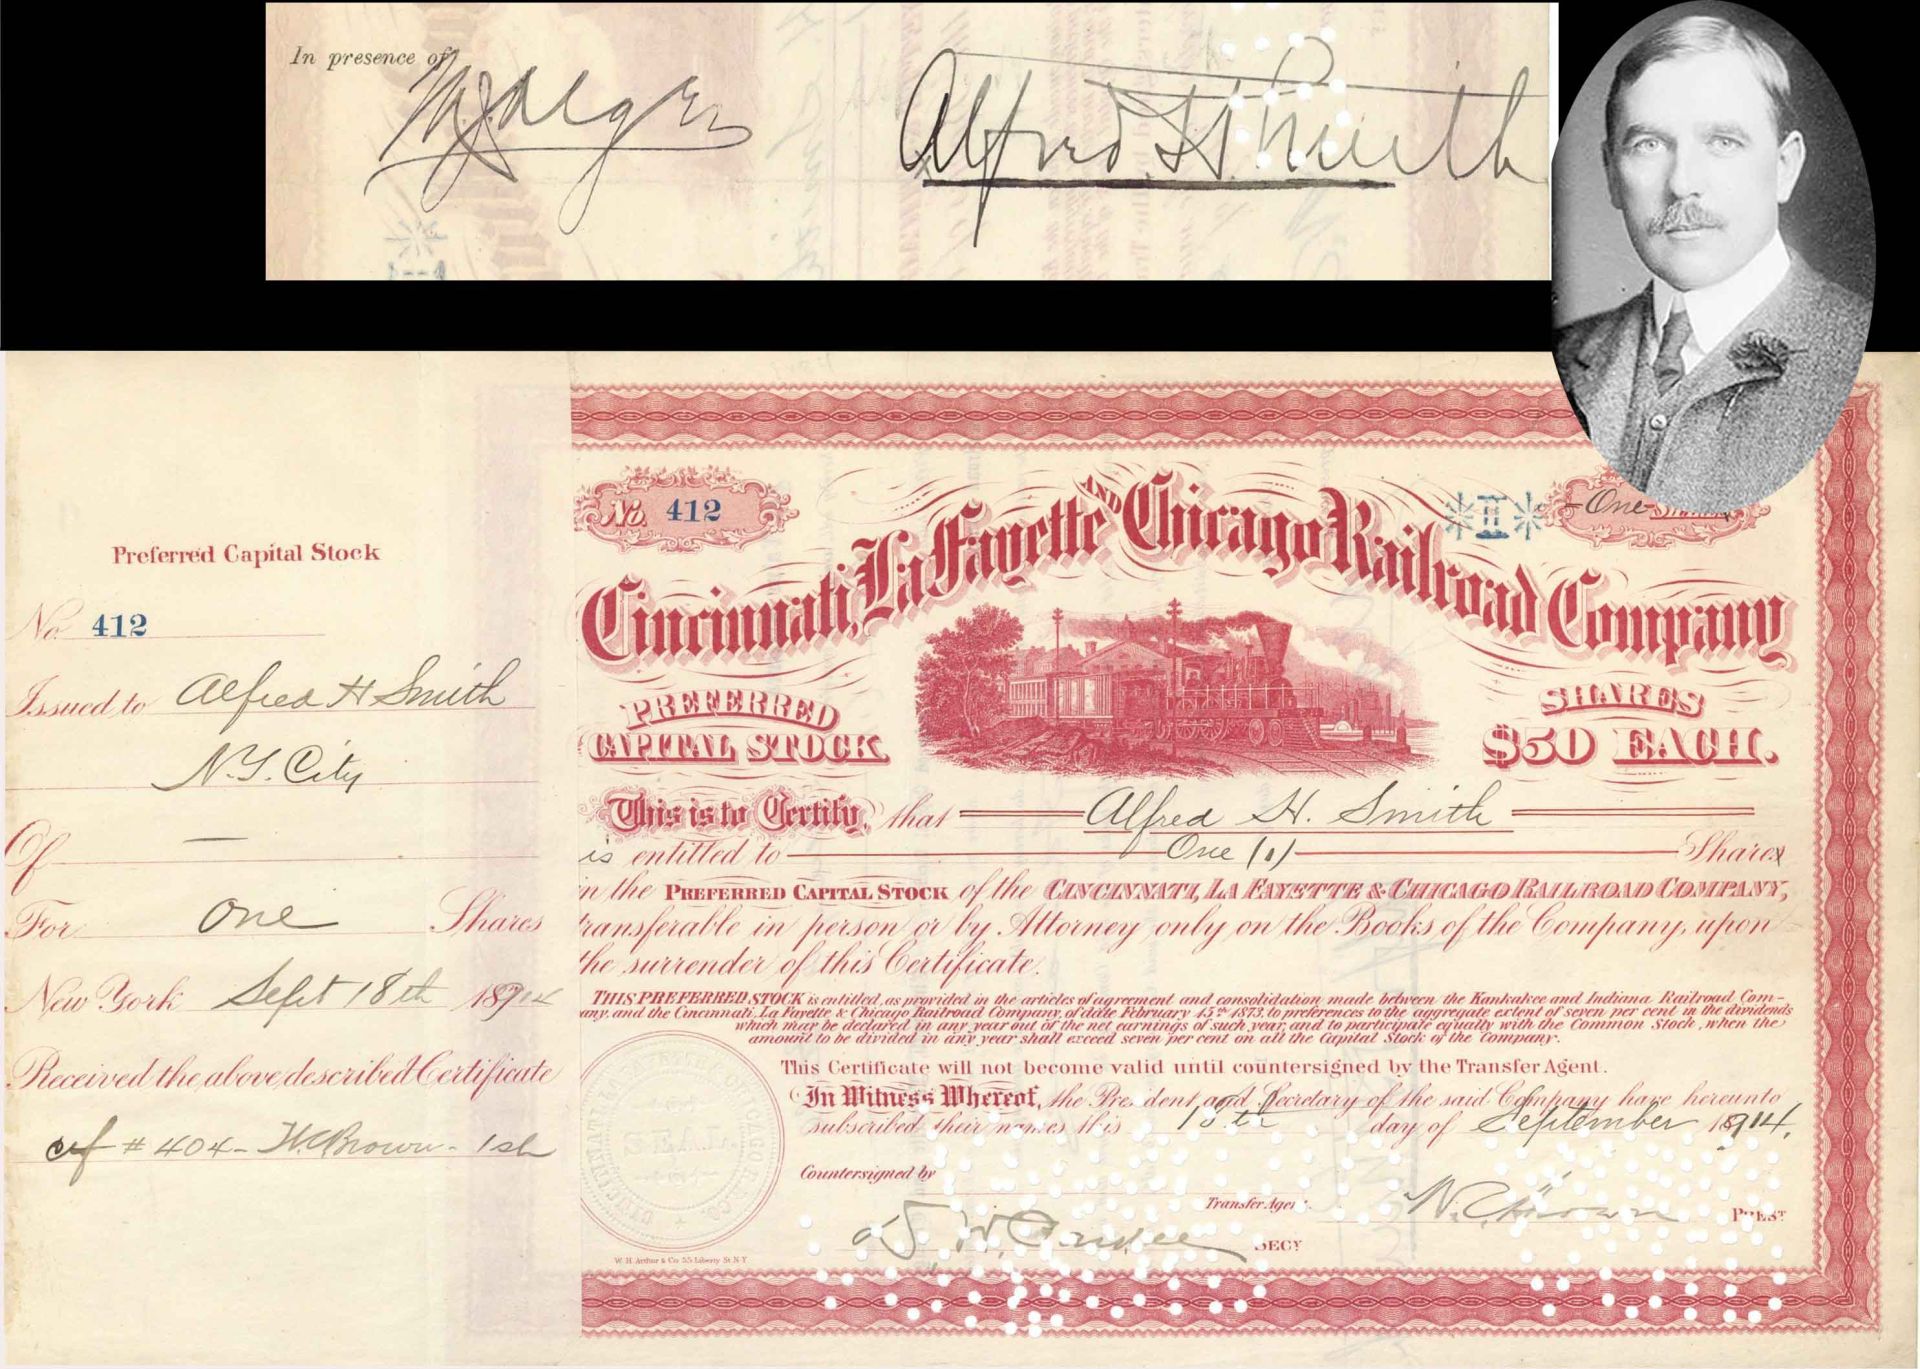 In presence of
Alfred H. Smith
Preferred Capital Stock
No. 412
Issued to Alfred H Smith
N.Y. City
Of —
For One Shares
New York Sept 18th 1914
Received the above described Certificate
cf # 404 - W.C. Brown - 1 sh
No. 412
II
-One- Shares
Cincinnati, LaFayette AND Chicago Railroad Company
PREFERRED CAPITAL STOCK.
SHARES $50 EACH.
This is to Certify, that Alfred H. Smith
is entitled to One (1) Share
in the PREFERRED CAPITAL STOCK of the CINCINNATI, LA FAYETTE & CHICAGO RAILROAD COMPANY,
transferable in person or by Attorney only on the Books of the Company, upon
the surrender of this Certificate.
THIS PREFERRED STOCK is entitled, as provided in the articles of agreement and consolidation made between the Kankakee and Indiana Railroad Com-
any, and the Cincinnati, La Fayette & Chicago Railroad Company, of date February 15th 1873, to preferences to the aggregate extent of seven per cent in the dividends
which may be declared in any year out of the net earnings of such year, and to participate equally with the Common Stock, when the
amount to be divided in any year shall exceed seven per cent on all the Capital Stock of the Company.
This Certificate will not become valid until countersigned by the Transfer Agent.
In Witness Whereof, the President and Secretary of the said Company have hereunto
subscribed their names this 18th day of September 1914.
Countersigned by
Transfer Agent.
W.C. Brown PREST
SECY
SEAL
W. H. Arthur & Co. 55 Liberty St. N.Y.